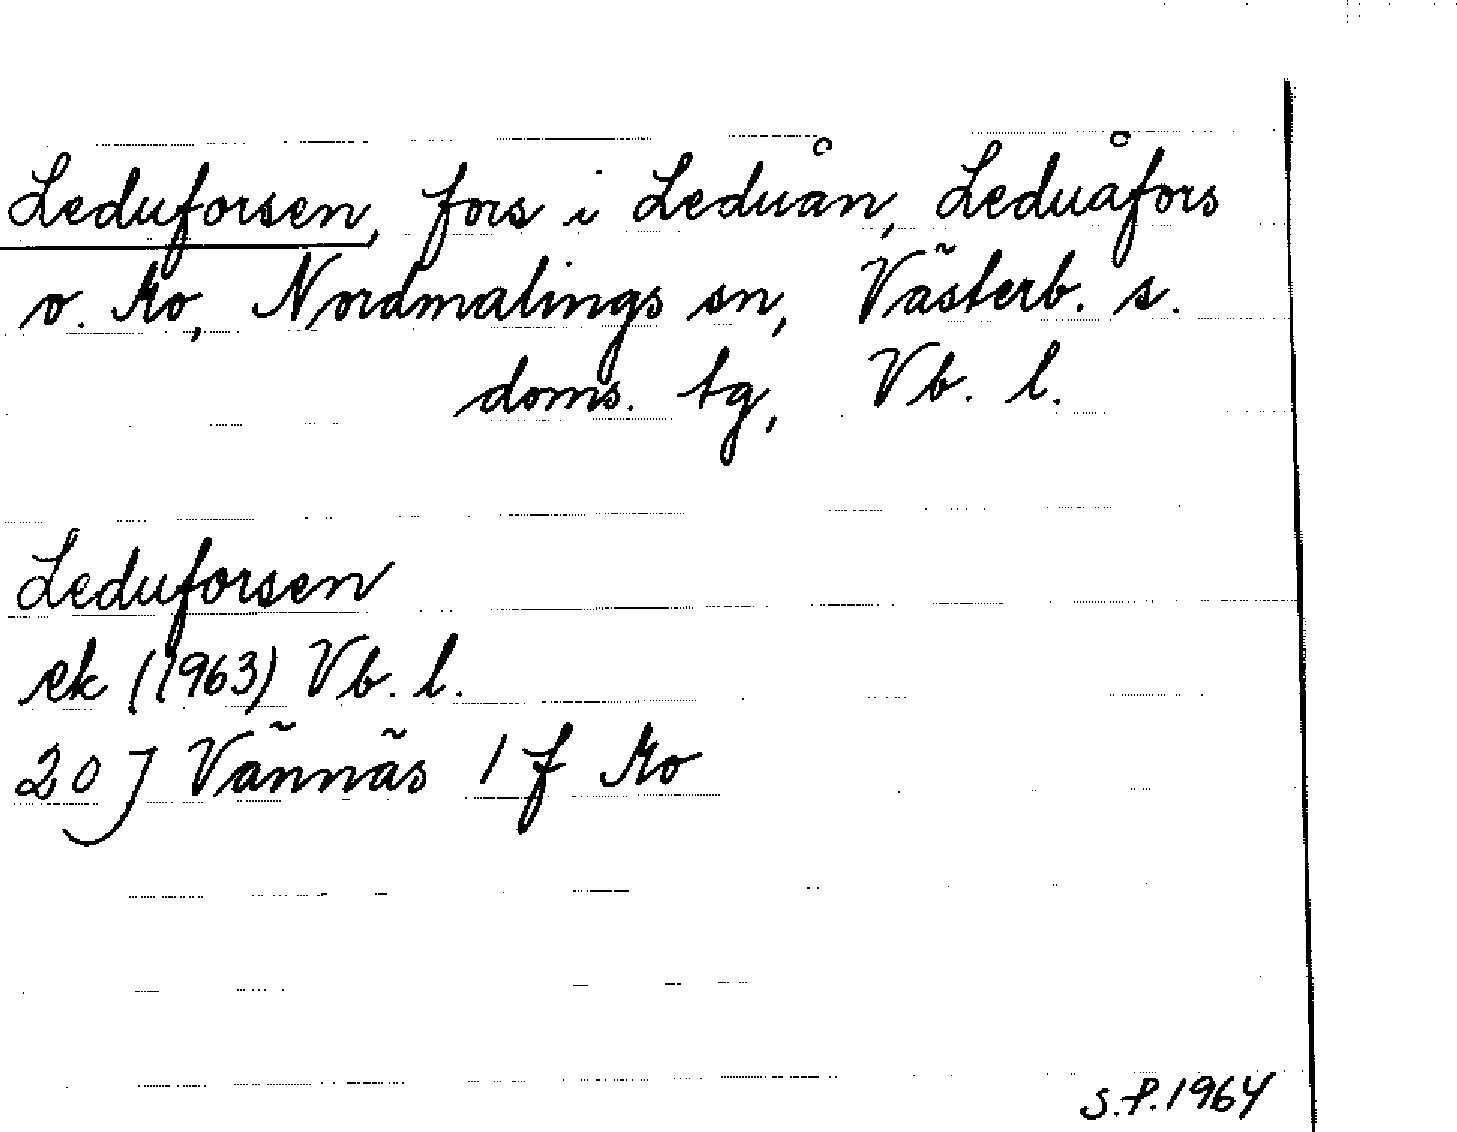 Leduforsen, fors i Leduån, Leduåfors
o. Mo, Nordmalings sn, Västerb. s.
doms. tg, Vb. l.
Leduforsen
ek (1963) Vb. l.
20 J Vännäs 1 f Mo
S.P. 1964